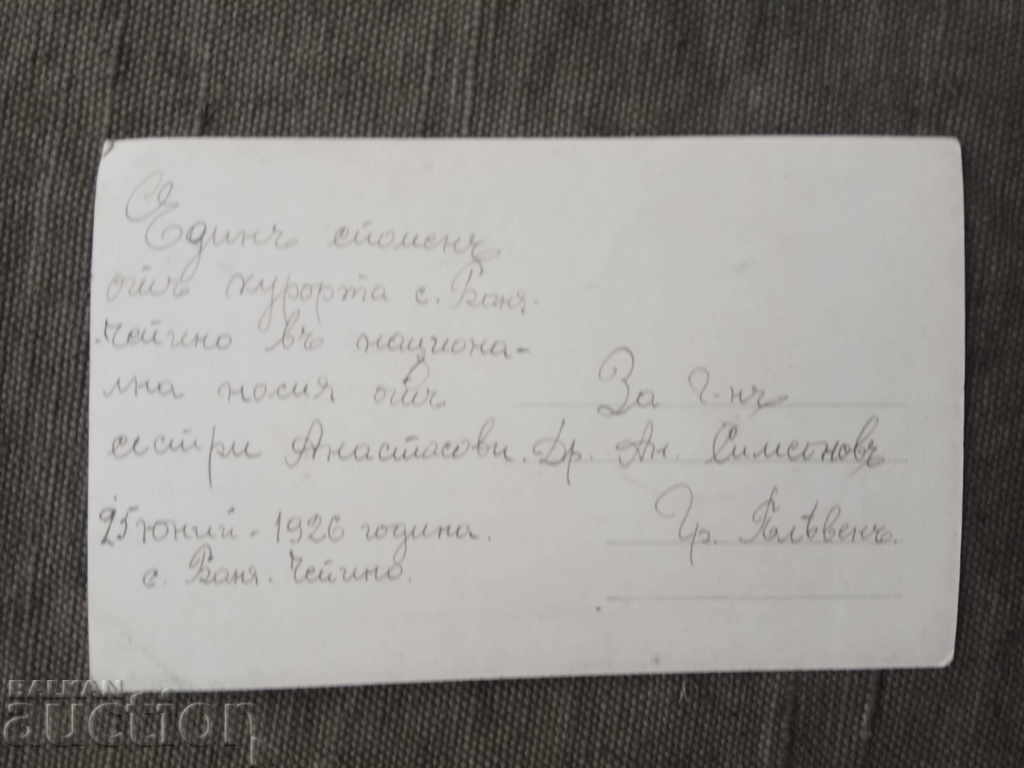 Единъ споменъ
отъ курорта с. Баня.
Чепино въ национа-
лна носия отъ
сестри Анастасови.
25 юний - 1926 година.
с. Баня. Чепино.
За г-нъ
Др. Ан. Симеоновъ
Гр. Плѣвенъ.
BALKAN
auction